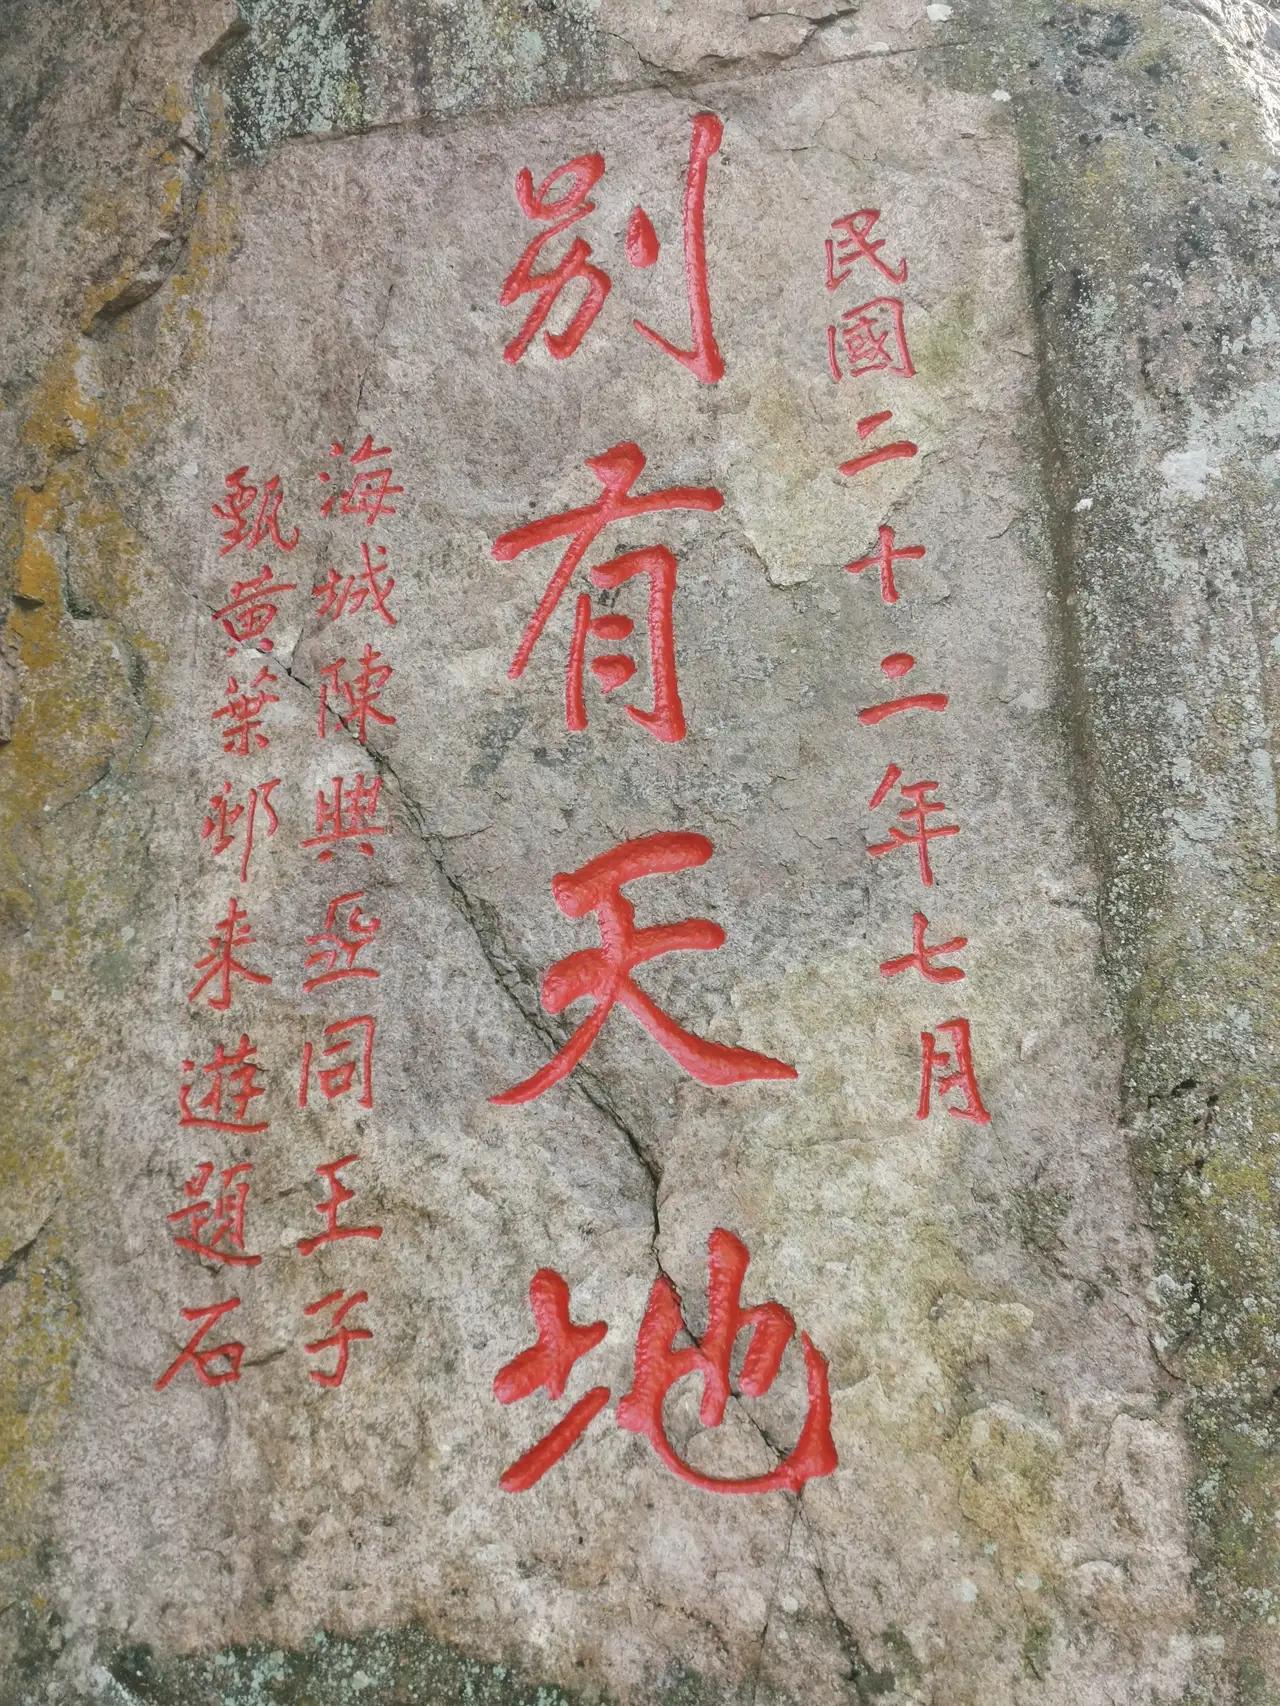 民國二十二年七月
別有天地
海城陳興亞同王子
甄黃葉邨來遊題石